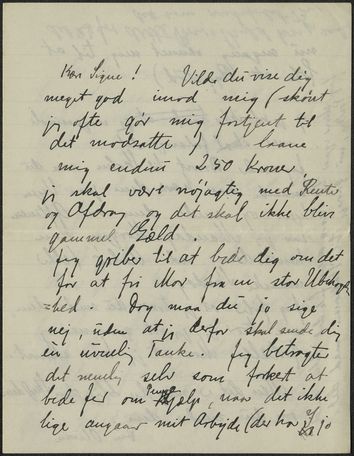 Kære Signe! Vilde du vise dig
meget god imod mig (skønt
jeg ofte gør mig fortjent til
det modsatte) laane
mig endnu 250 Kroner,
jeg skal være nøjagtig med Rente
og Afdrag og det skal ikke blive
gammel Gæld.
Jeg griber til at bede dig om det
for at fri Mor fra en stor Ubehagelig
=hed. Dog maa du jo sige
nej, uden at jeg derfor skal sende dig
en uvenlig Tanke. Jeg betragter
det nemlig selv som forkert at
bede før om Penge
Hjælp, naar det ikke
lige angaar mit Arbejde (der har jo